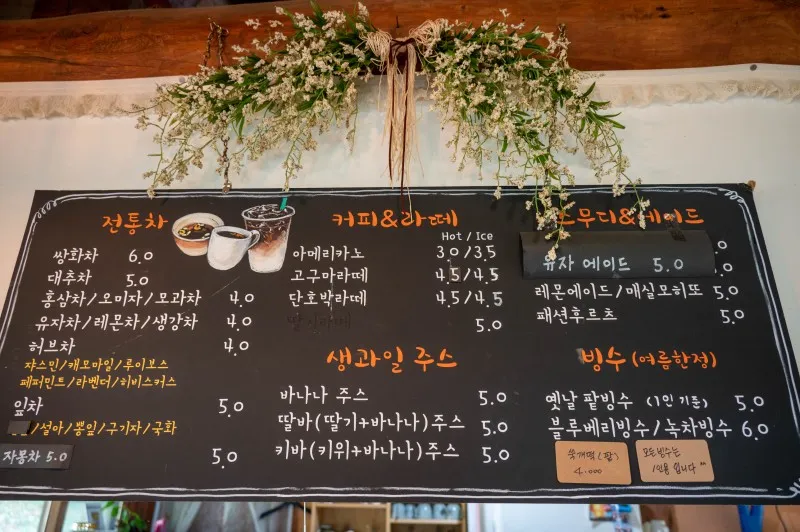 전통차
쌍화차 6.0
대추차 5.0
홍삼차/오미자/모과차 4.0
유자차/레몬차/생강차 4.0
허브차 4.0
쟈스민/캐모마일/루이보스
페퍼민트/라벤더/히비스커스
잎차 5.0
/설마/뽕잎/구기자/국화
자몽차 5.0
5.0
커피&라떼
Hot / Ice
아메리카노 3.0/3.5
고구마라떼 4.5/4.5
단호박라떼 4.5/4.5
5.0
생과일 주스
바나나 주스 5.0
딸바(딸기+바나나)주스 5.0
키바(키위+바나나)주스 5.0
스무디&에이드
유자 에이드 5.0
레몬에이드/매실모히또 5.0
패션후르츠 5.0
빙수 (여름한정)
옛날 팥빙수 (1인 기준) 5.0
블루베리빙수/녹차빙수 6.0
쑥개떡(팥)
4.000
모든빙수는
1인용 입니다^^